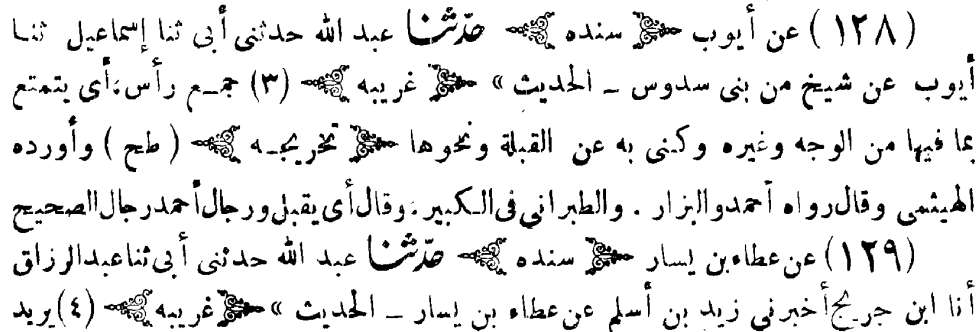 (١٢٨) عن أيوب ﴿ سنده ﴾ حدّثنا عبد الله حدثنى أبى ثنا إسماعيل ثنا
أيوب عن شيخ من بنى سدوس ـ الحديث » ﴿ غريبه ﴾ (٣) جمـع رأس، أى يتمتع
بما فيها من الوجه وغيره وكنى به عن القبلة ونحوها ﴿ تخريجـه ﴾ ( طح ) وأورده
الهيثمى وقال رواه أحمد والبزار . والطبرانى فى الـكبير . وقال أى يقبل ورجال أحمد رجال الصحيح
(١٢٩) عن عطاء بن يسار ﴿ سنده ﴾ حدّثنا عبد الله حدثنى أبى ثنا عبد الرزاق
أنا ابن جريج أخبرنى زيد بن أسلم عن عطاء بن يسار ـ الحديث » ﴿ غريبه ﴾ (٤) يريد